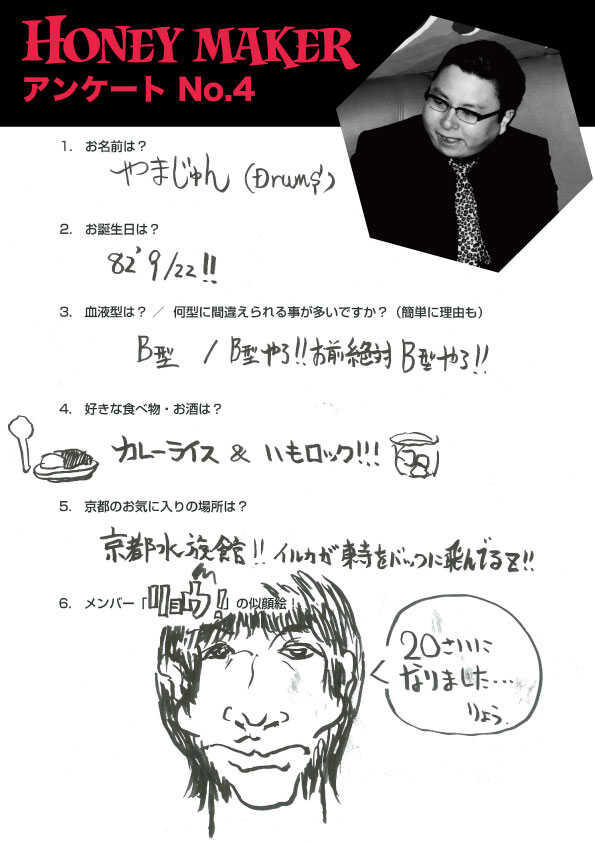 HONEY MAKER
アンケート No.4
1. お名前は？
やまじゅん (Drums)
2. お誕生日は？
82' 9/22!!
3. 血液型は？ ／ 何型に間違えられる事が多いですか？（簡単に理由も）
B型 / B型やろ!!お前絶対B型やろ!!
4. 好きな食べ物・お酒は？
カレーライス & いもロック!!!
5. 京都のお気に入りの場所は？
京都水族館!! イルカが東寺をバックに飛んでるZ!!
6. メンバー「リョウ!」の似顔絵！
20さいに
なりました…
りょう